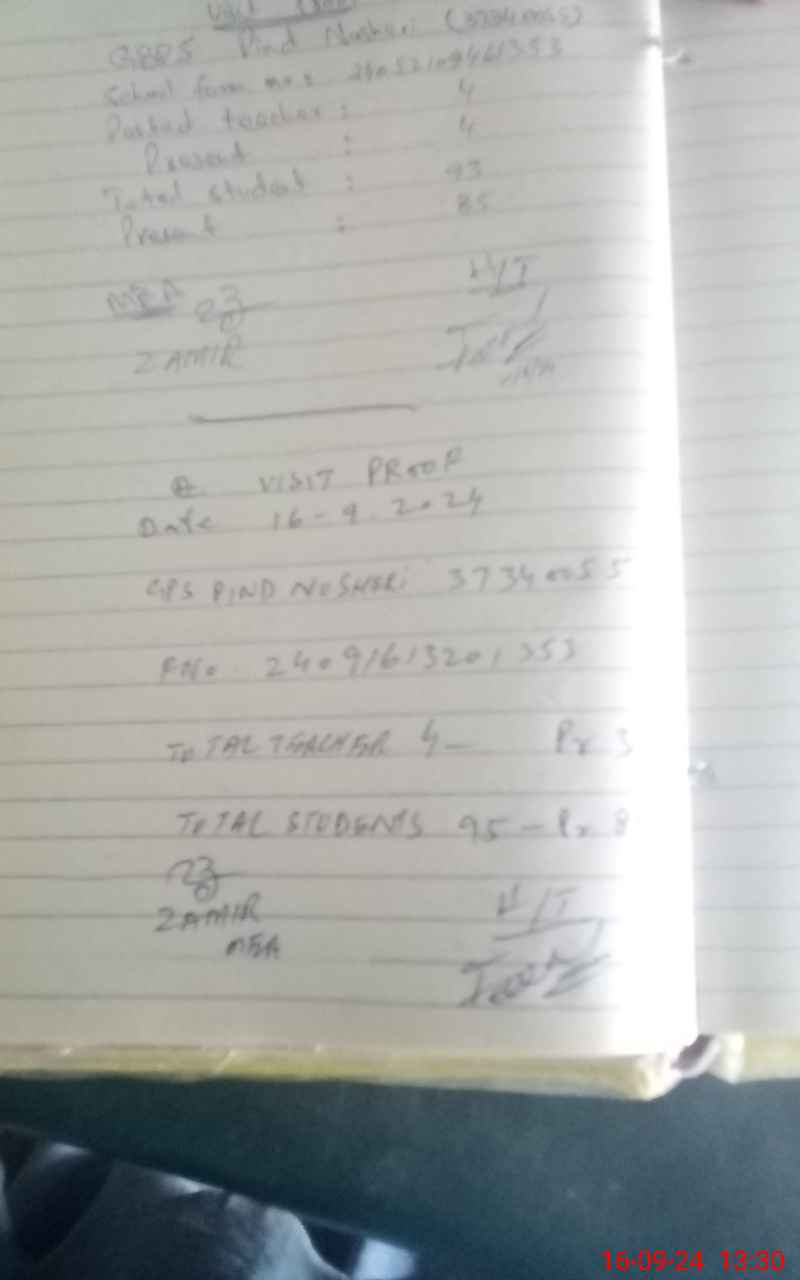 Visit Proof
GBPS Pind Nosheri (37340055)
School form no:
Posted teacher : 4
Present : 4
Total student : 93
Present : 85
MEA H/T
ZAMIR
VISIT PROOF
Date 16-9-2024
GPS PIND NOSHERi 37340055
FNo. 24091613201353
ToTAL TEACHER 4 - Pr 3
ToTAL STUDENTS 95 - Pr 8
ZAMIR H/T
MEA
16-09-24 13:30